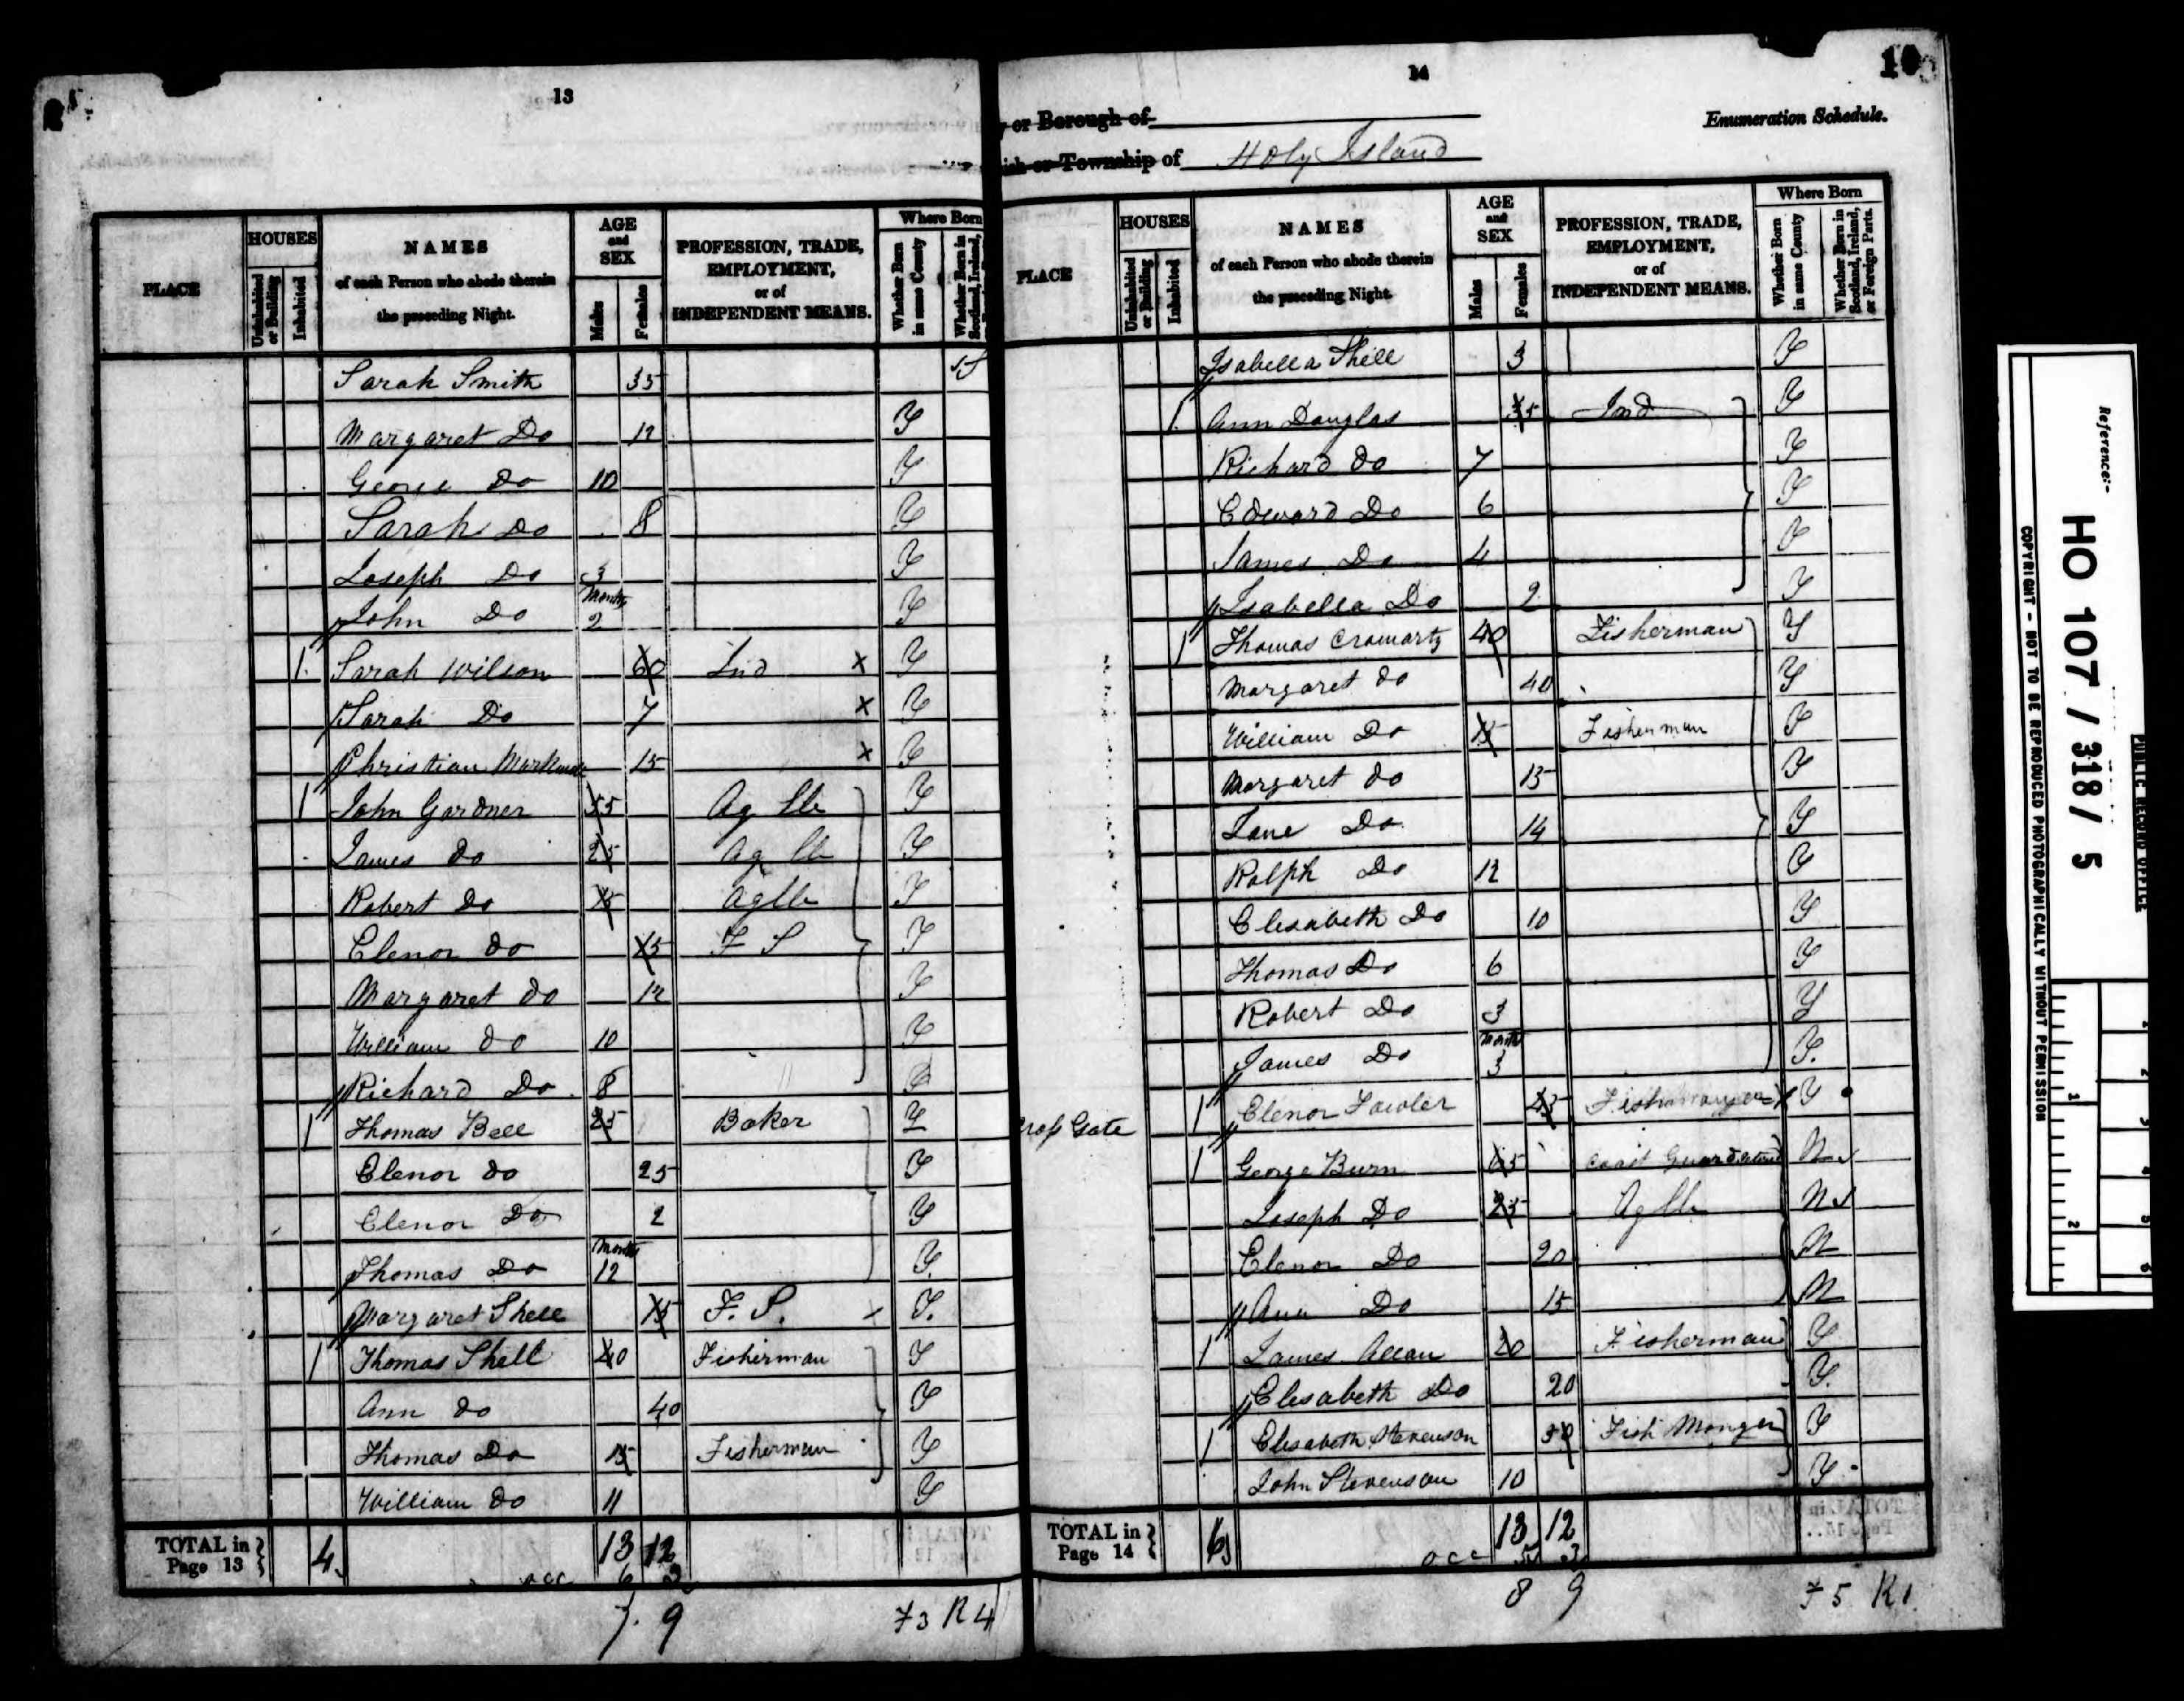 13
PLACE
HOUSES
Uninhabited or Building
Inhabited
NAMES
of each Person who abode therein
the preceding Night.
AGE and SEX
Males
Females
PROFESSION, TRADE, EMPLOYMENT, or of INDEPENDENT MEANS.
Where Born
Whether Born in same County
Whether Born in Scotland, Ireland,
Sarah Smith 35 S
Margaret Do 12 Y
George Do 10 Y
Sarah Do 8 Y
Joseph Do 3 Y
John Do Months 2 Y
1 Sarah Wilson 60 Ind X Y
Sarah Do 7 X Y
Christian 15 X Y
1 John Gardner 55 Ag Lb Y
James Do 25 Ag Lb Y
Robert Do 15 Ag Lb Y
Elenor Do 15 F S Y
Margaret Do 12 Y
William Do 10 Y
Richard Do 8 Y
1 Thomas Bell 25 Baker Y
Elenor Do 25 Y
Elenor Do 2 Y
Thomas Do Months 12 Y
Margaret Shell 15 F. S. Y.
1 Thomas Shell 40 Fisherman Y
Ann Do 40 Y
Thomas Do 15 Fisherman Y
William Do 11 Y
TOTAL in Page 13 4 13 12
occ 6 3
7 9 F3 R4
14
or Borough of
Enumeration Schedule.
or Township of Holy Island
PLACE
HOUSES
Uninhabited or Building
Inhabited
NAMES
of each Person who abode therein
the preceding Night.
AGE and SEX
Males
Females
PROFESSION, TRADE, EMPLOYMENT, or of INDEPENDENT MEANS.
Where Born
Whether Born in same County
Whether Born in Scotland, Ireland, or Foreign Parts.
Isabella Shell 3 Y
1 Ann Douglas 35 Ind Y
Richard Do 7 Y
Edward Do 6 Y
James Do 4 Y
Isabella Do 2 Y
1 Thomas Cromarty 40 Fisherman Y
Margaret Do 40 Y
William Do 15 Fisherman Y
Margaret Do 15 Y
Jane Do 14 Y
Ralph Do 12 Y
Elisabeth Do 10 Y
Thomas Do 6 Y
Robert Do 3 Y
James Do Months 3 Y.
Gate 1 Elenor Fowler Fishmonger Y
1 George Burn 65 Coast Guard N
Joseph Do 25 Ag Lb N
Elenor Do 20 N
Ann Do 15 N
1 James Allan 20 Fisherman Y
Elesabeth Do 20 Y.
1 Elesabeth Stevenson Fish Monger Y
John Stevenson 10 Y
TOTAL in Page 14 6 13 12
occ 5 3
8 9 F5 R1
Reference:-
HO 107 / 318 / 5
COPYRIGHT - NOT TO BE REPRODUCED PHOTOGRAPHICALLY WITHOUT PERMISSION
PUBLIC RECORD OFFICE
1
2
1
2
3
4
5
6